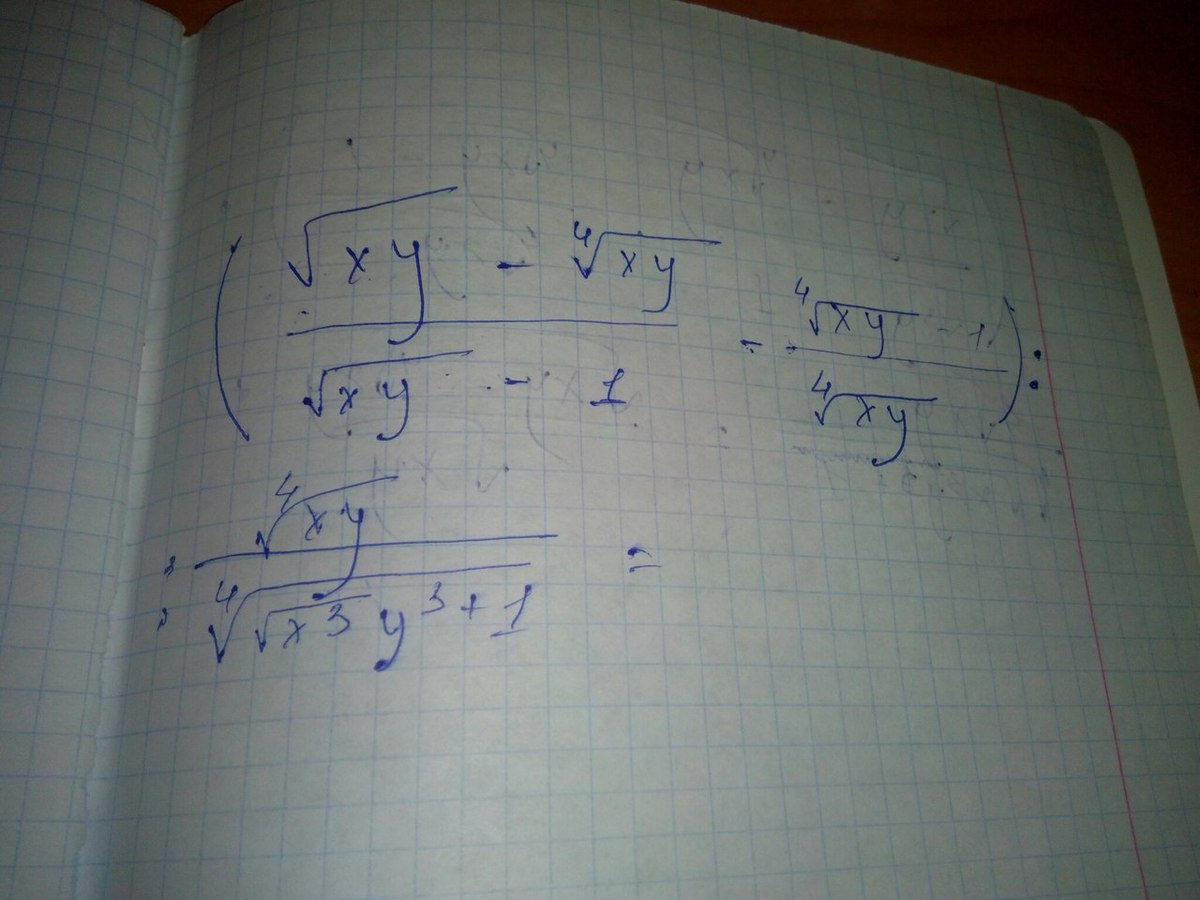 ( (√xy - ⁴√xy) / (√xy - 1) - (⁴√xy - 1) / ⁴√xy ) :
: ⁴√xy / ⁴√(√x³ y³ + 1) =